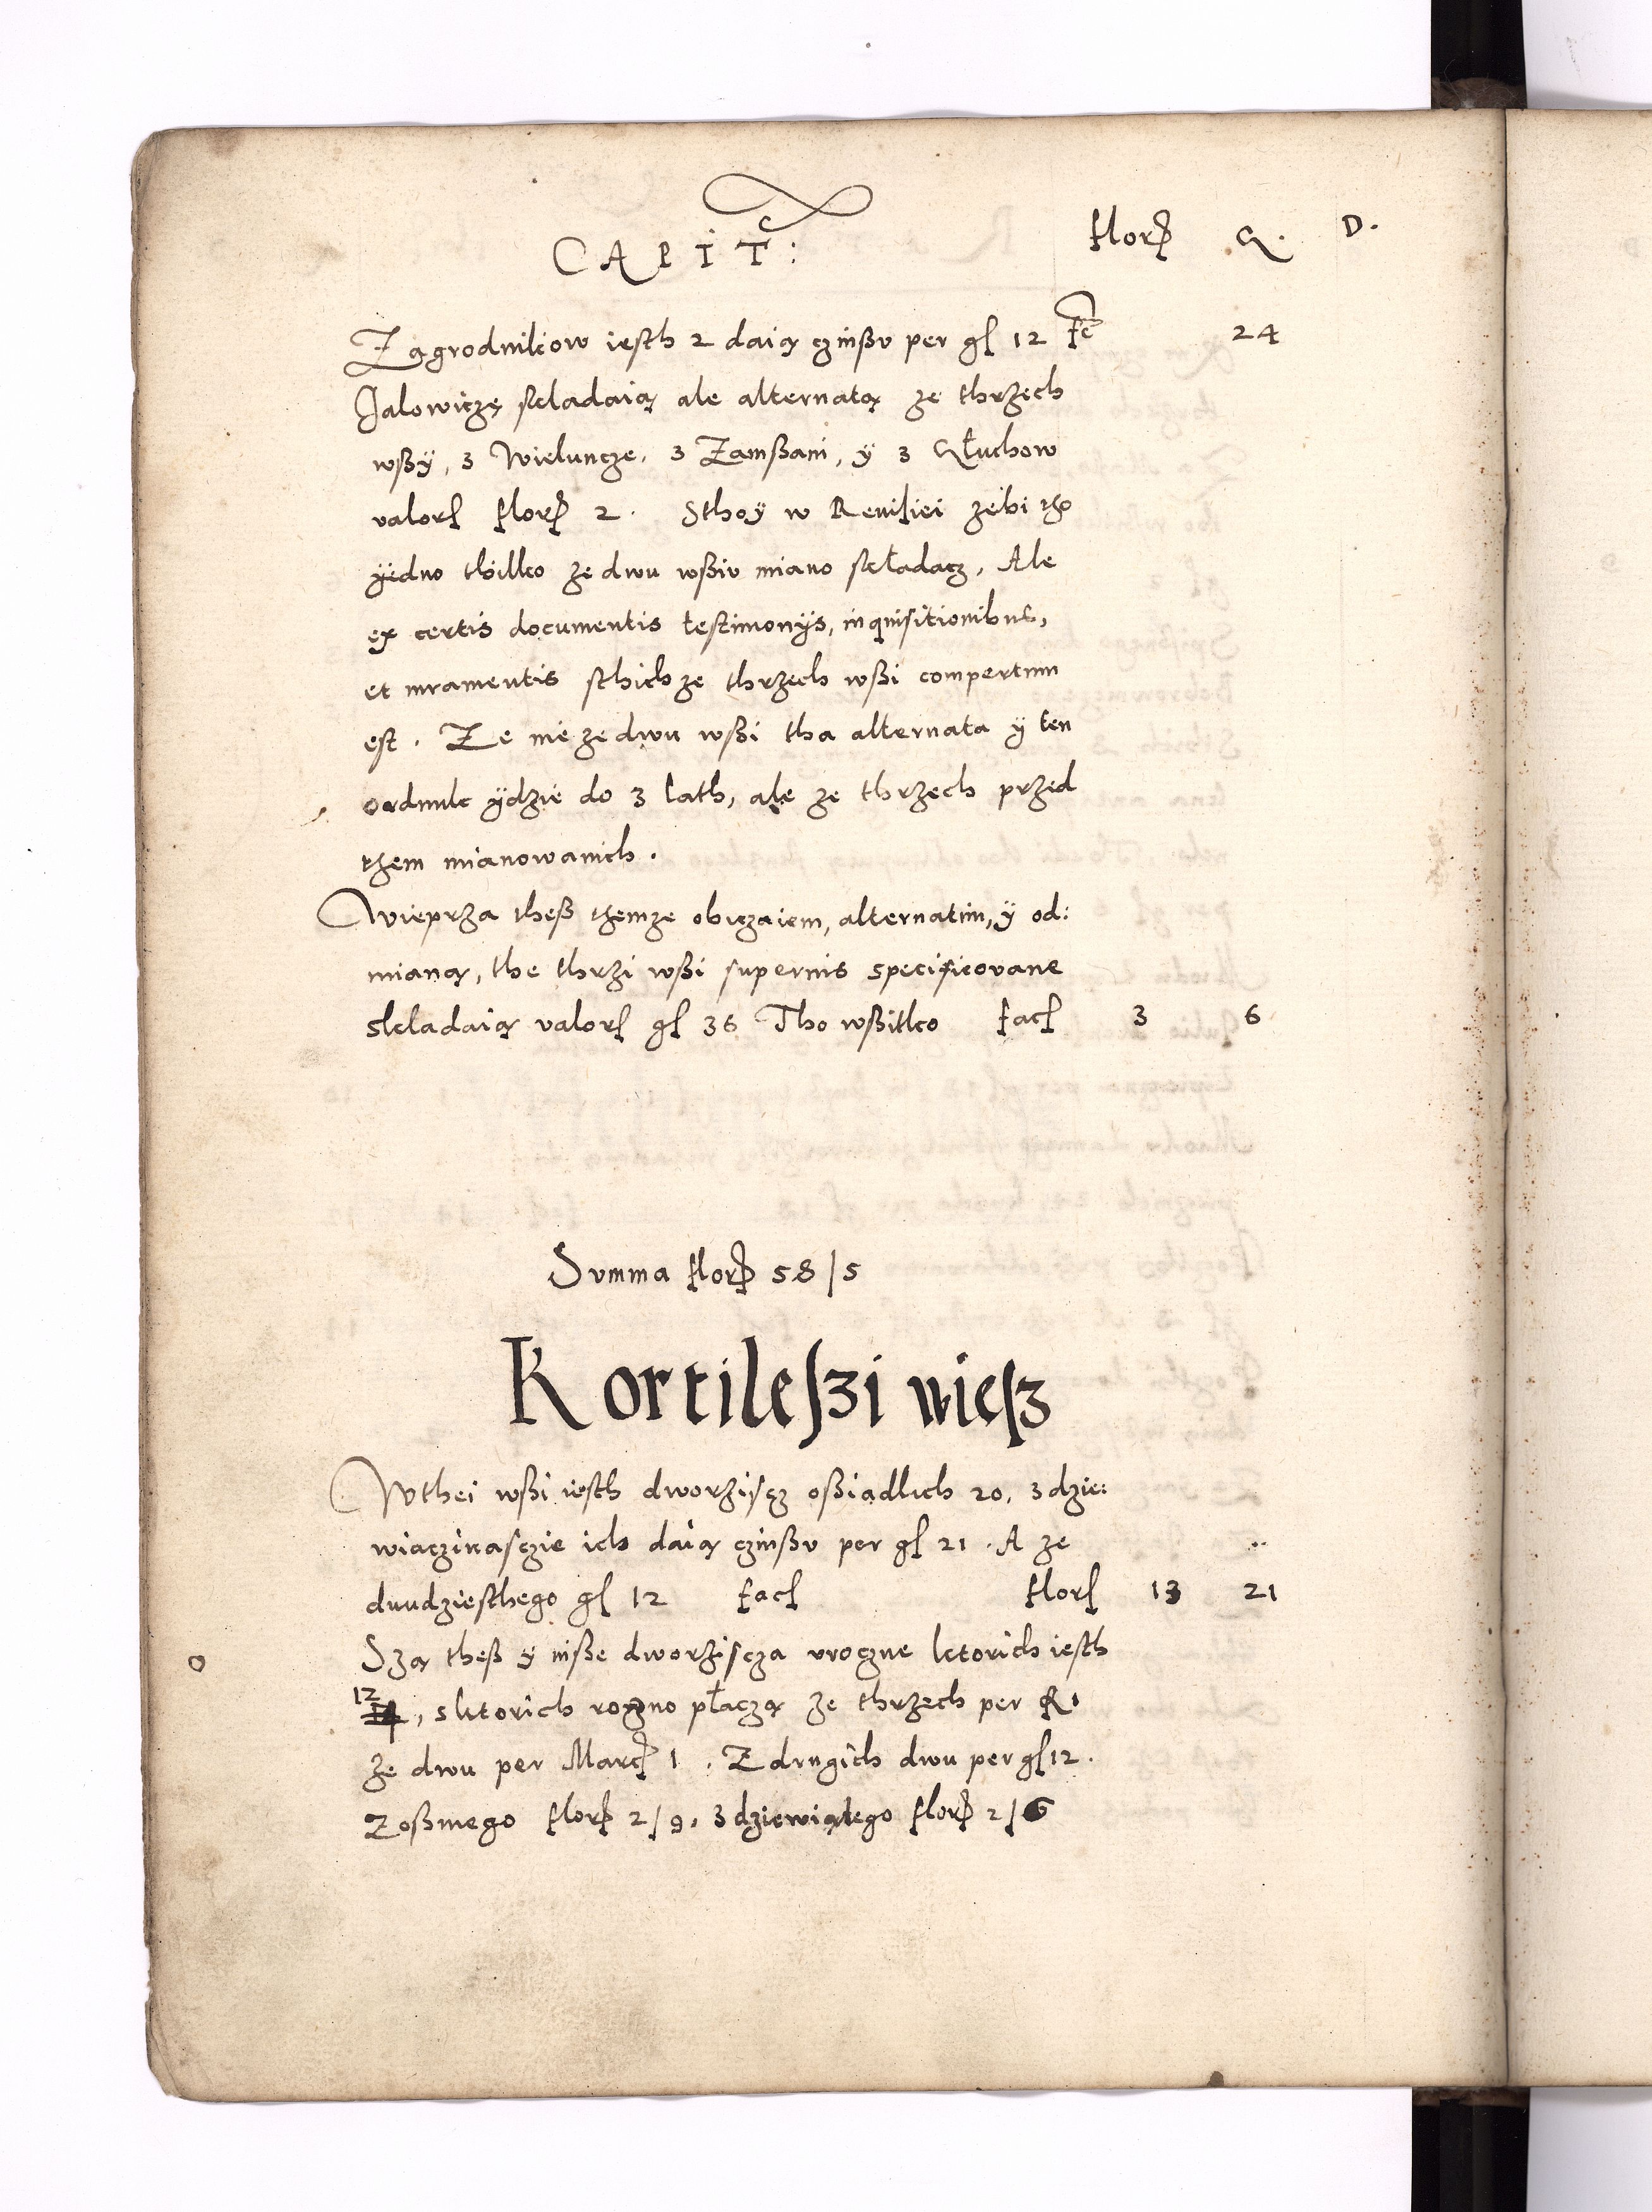 CAPIT: florß G. D.
Zagrodnikow iesth 2 daią czinßv per gſ 12 fc 24
Jalowiczę skladaią ale alternatą ze thrzech
wßÿ, 3 Wieluncze, 3 Zamßani, ÿ 3 Głuchow
valorſ florß 2. Sthoÿ w Reuiſiei zebi tho
ÿedno thilko ze dwu wßiv miano składacz, Ale
ex certis documentis testimonÿs, inquisitionibus,
et iuramentis sthich ze thrzech wßi compertum
est. Ze nie ze dwu wßi tha alternata ÿ ten
ordunk ÿdzie do 3 lath, ale ze thrzech przed
them mianowanich.
Wieprza theß themze obiczaiem, alternatim, ÿ od:
mianą, the thrzi wßi supernis specificovane
skladaią valorſ gſ 36 Tho wßitko facſ 3 6
Summa florß 58/5
Kortileſzi wieſz
Wthei wßi iesth dworziscz oßiadlich 20, 3 dzie:
wiaczinasczie ich daią czinßv per gſ 21. A ze
dwudziesthego gſ 12 facſ florſ 13 21
Szą theß y inße dworzisca vroczne ktorich iesth
12, sktorich rozno płaczą ze thrzech per R 1
ze dwu per Marcß 1. Z drugich dwu per gſ 12.
Zoßmego florß 2/9, 3 dziewiątego florß 2/6